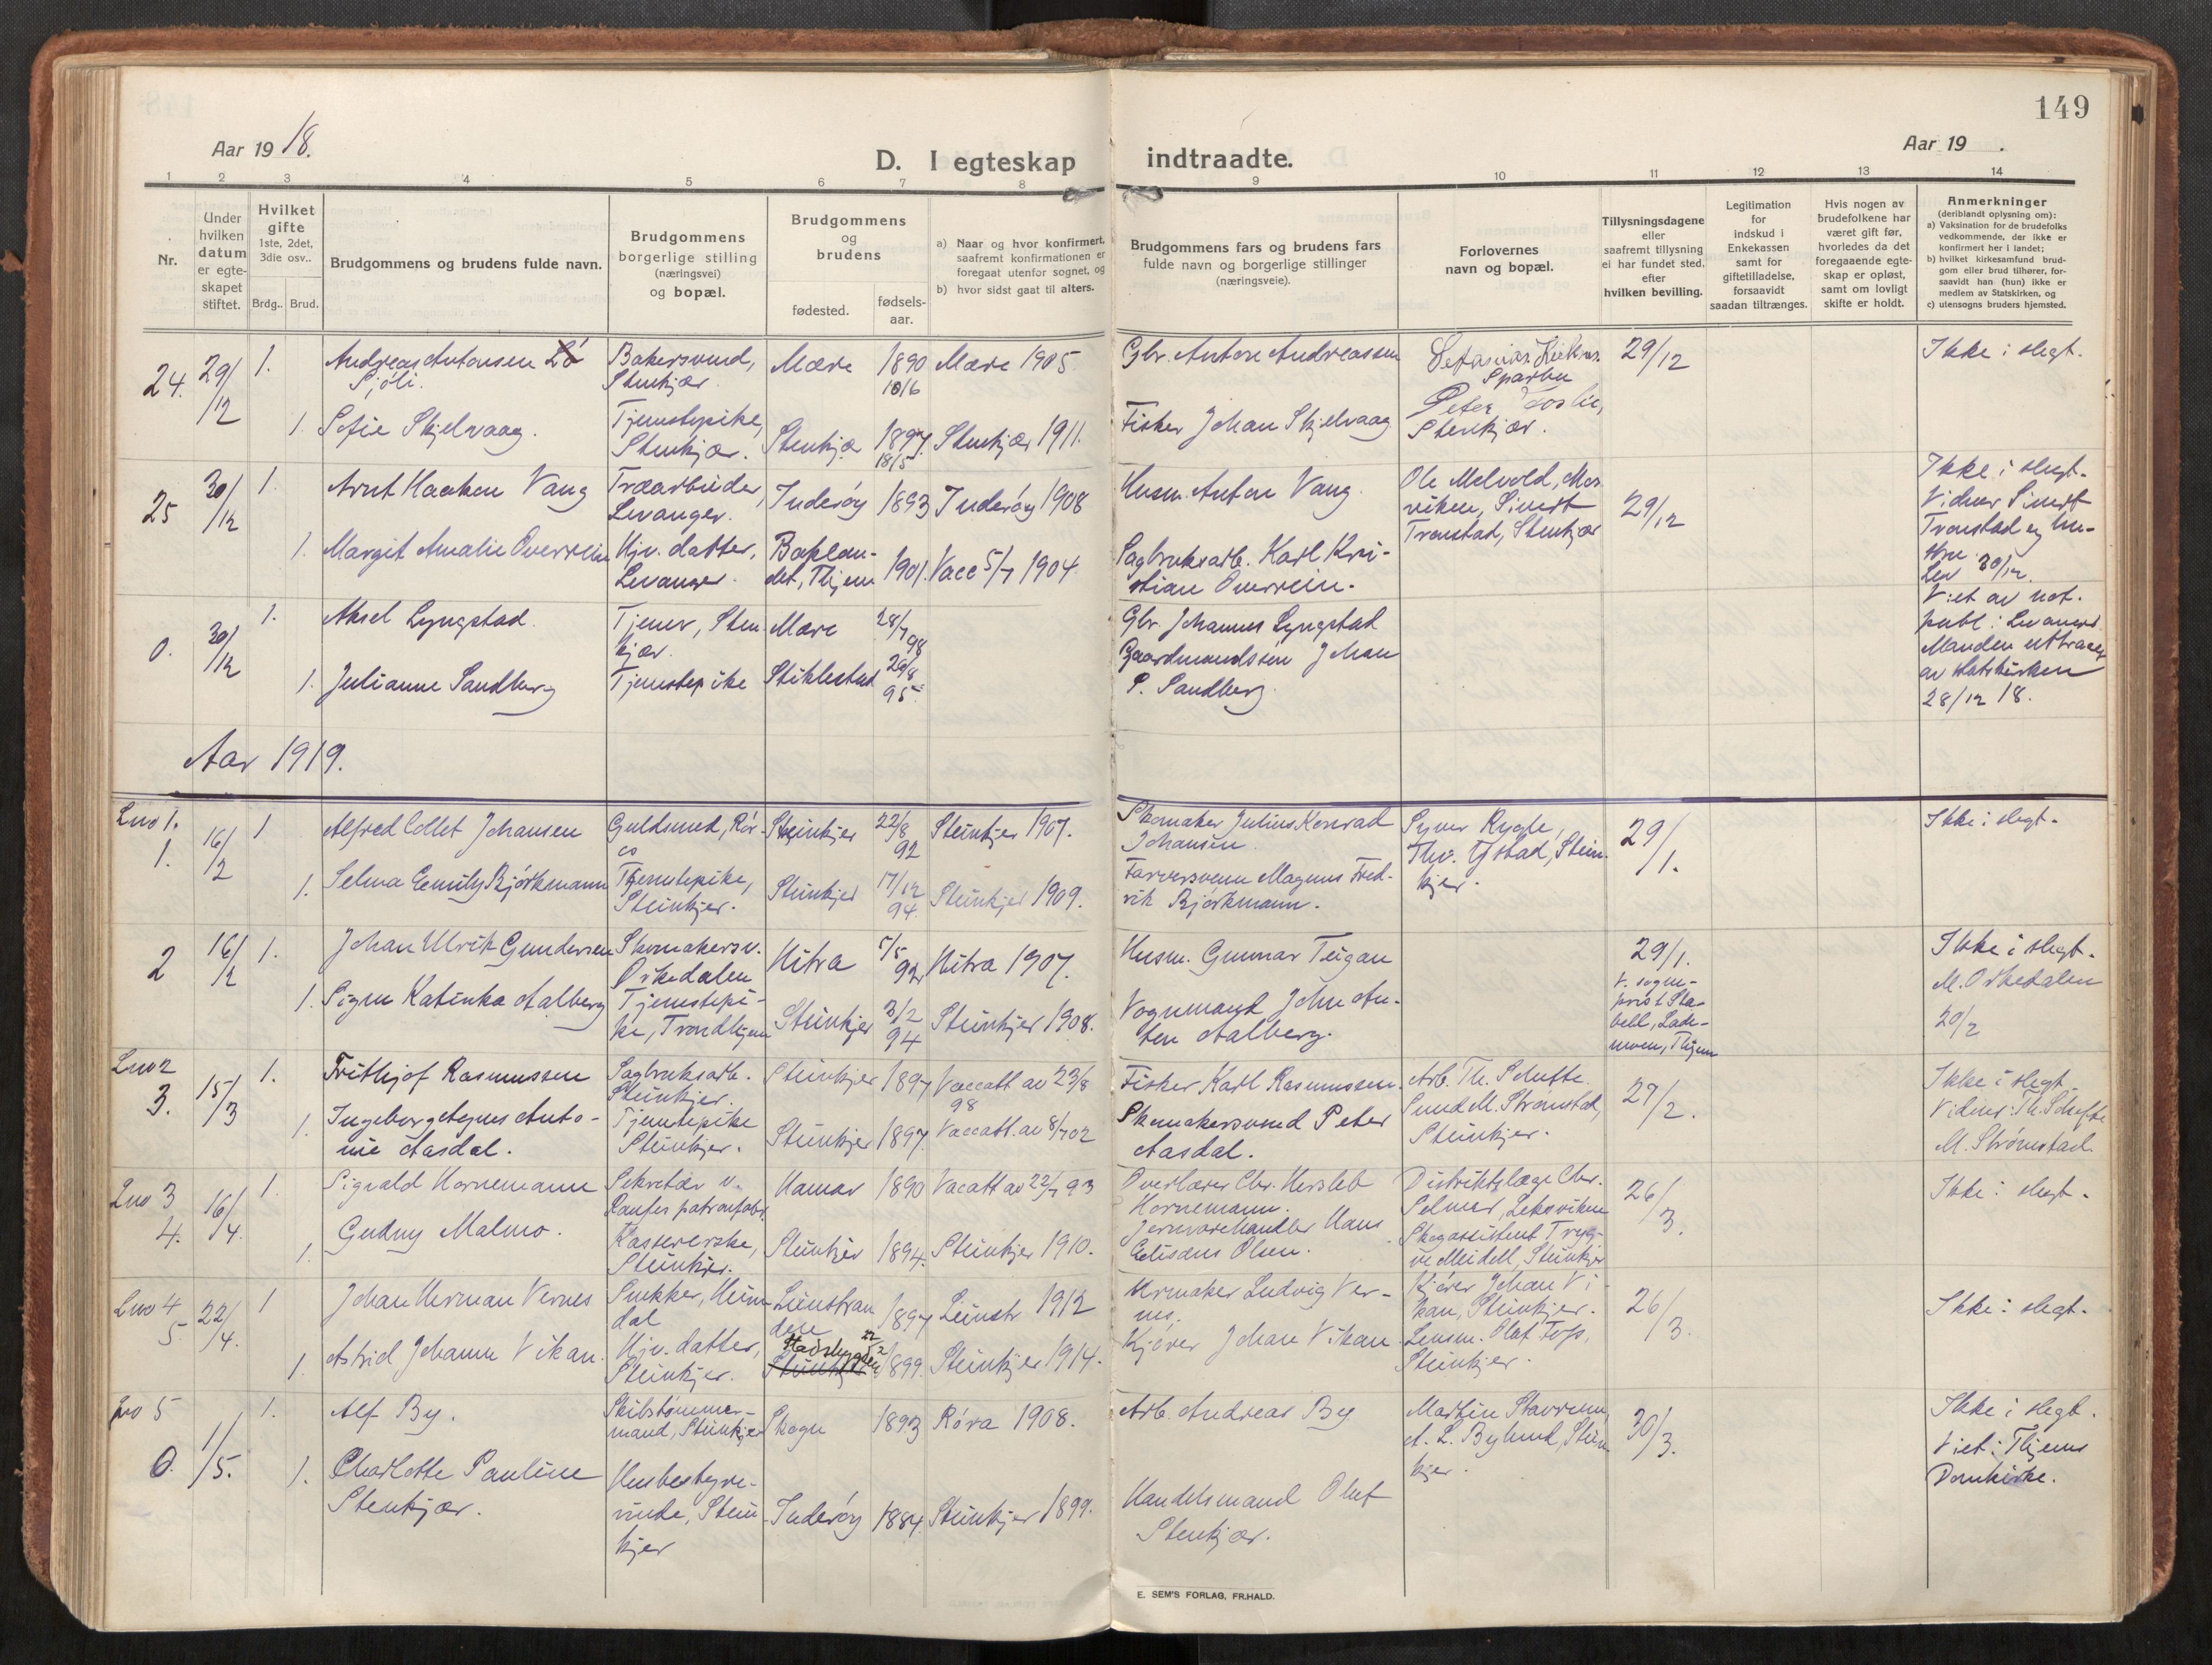 149
Aar 19 18.
D. I egteskap
indtraadte.
Aar 19 .
1 2 3 4 5 6 7 8 9 10 11 12 13 14
Nr.
Under
hvilken
datum
er egte-
skapet
stiftet.
Hvilket
gifte
1ste, 2det,
3die osv..
Brdg. Brud.
Brudgommens og brudens fulde navn.
Brudgommens
borgerlige stilling
(næringsvei)
og bopæl.
Brudgommens
og
brudens
fødested.
fødsels-
aar.
a) Naar og hvor konfirmert,
saafremt konfirmationen er
foregaat utenfor sognet, og
b) hvor sidst gaat til alters.
Brudgommens fars og brudens fars
fulde navn og borgerlige stillinger
(næringsveie).
Forlovernes
navn og bopæl.
Tillysningsdagene
eller
saafremt tillysning
ei har fundet sted,
efter
hvilken bevilling.
Legitimation
for
indskud i
Enkekassen
samt for
giftetilladelse,
forsaavidt
saadan tiltrænges.
Hvis nogen av
brudefolkene har
været gift før,
hvorledes da det
foregaaende egte-
skap er opløst,
samt om lovligt
skifte er holdt.
Anmerkninger
(deriblandt oplysning om):
a) Vaksination for de brudefolks
vedkommende, der ikke er
konfirmert her i landet;
b) hvilket kirkesamfund brud-
gom eller brud tilhører, for-
saavidt han (hun) ikke er
medlem av Statskirken, og
c) utensogns bruders hjemsted.
24. 29/12 1. Andreas Antonsen
Sjöli.
Bakersvend,
Stenkjær.
Mære 1890
10/6
Mære 1905
Gbr. Antore Andreassen
Sparbu
29/12
Ikke i slegt.
1. Sofie Skjelvaag.
Tjenestepike,
Stenkjær.
Stenkjær 1897
18/5
Stenkjær 1911.
Fisker Johan Skjelvaag
Peter Foslie,
Stenkjær.
25 30/12 1. Arnt Haakon Vang
Træarbeider,
Levanger.
Inderöy 1893 Inderöy 1908
Husm. Anton Vang.
Ole Melvold, Mos-
viken, Sivert
Tronstad, Stenkjær
29/12
Ikke i slegt.
Vidner Sivert
Tronstad og hu-
stru.
Lev 30/12.
1. Margit Amalie Overrein
Hjv. datter,
Levanger.
Baklan-
det, Thjem
1901. Vacc 5/7 1904
Sagbruksarb. Karl Kri-
stian Overrein.
0. 30/12 1. Aksel Lyngstad.
Tjener, Sten
kjær.
Mære 28/7
98
Gbr. Johannes Lyngstad
Viet av not.
publ. i Levanger.
Manden uttraadt
av statskirken
28/12 18.
1. Julianne Sandberg
Tjenestepike
Stiklestad 26/8
95
Gaardmandssön Johan
P. Sandberg.
Aar 1919.
Lno 1.
1. 16/2 1 Alfred Collet Johansen
Guldsmed, Rör-
os
Steinkjer 22/8
92
Steinkjer 1907.
Skomaker Julius Konrad
Johansen
Syver Rygle,
Thv. Ystad, Stein-
kjer.
29/1.
Ikke i slegt.
1. Selma Emily Björkmann
Tjenestepike,
Steinkjer.
Steinkjer 17/12
94
Steinkjer 1909.
Farversvenn Magnus Fred-
rik Björkmann.
2 16/2 1. Johan Ulrik Gundersen
Skomakersv.
Orkedalen
Hitra 5/5
92
Hitra 1907.
Husm. Gunnar Teigan
29/1.
V. sogne-
prest Sta-
bell, Lade-
moen, Thjem
Ikke i slegt.
M. Orkedalen
20/2
1. Signe Katinka Aalberg
Tjenestepi-
ke, Trondhjem
Steinkjer 3/2
94
Steinkjer 1908.
Vognmand John An-
ton Aalberg.
Lno 2
3. 15/3 1. Frithjof Rasmussen
Sagbruksarb.
Steinkjer.
Steinkjer 1897 Vaccatt av 23/8
98
Fisker Karl Rasmussen.
Arb. Th. Schefte
Sund M. Strömstad,
Steinkjer.
27/2.
Ikke i slegt.
Vidner: Th. Schefte
M. Strömstad.
1. Ingeborg Agnes Anto-
nie Aasdal.
Tjenestepike
Steinkjer.
Steinkjer 1897. Vaccatt. av 8/7 02
Skomakersvend Peter
Aasdal.
Lno 3
4. 16/4 1. Sigvald Hornemann
Sekretær v.
Raufos patronfabr.
Hamar 1890 Vacatt av 22/7 93
Overlærer Chr. Hersleb
Hornemann.
Distriktslæge Chr.
Selmer, Leksviken
Skogassistent Tryg-
ve Meidell, Steinkjer
26/3.
Ikke i slegt.
1. Gudny Malmo.
Kassererske,
Steinkjer.
Steinkjer 1894. Steinkjer 1910.
Jernvarehandler Hans
Edisens Olsen.
Lno 4
5 22/4. 1 Johan Herman Vernes
Snekker, Heim-
dal
Leinstran
den
1897 Leinstr 1912
Urmaker Ludvig Ver-
nes.
Kjörer Johan Vi-
kan, Steinkjer.
Lensm. Olaf Five,
Steinkjer.
26/3.
Ikke i slegt.
1. Astrid Johanne Vikan.
Hjv. datter,
Steinkjer.
Stadsbygden 22/2
Steinkjer
1899. Steinkjer 1914.
Kjörer Johan Vikan
Lno 5
0. 1/5. 1. Alf By.
Skibstömmer-
mand, Steinkjer
Skogn 1893 Röra 1908.
Arb. Andreas By
Martin Stavrum,
A. L. Bylund, Stein
kjer.
30/3.
Ikke i slegt.
Viet i Thjems
Domkirke.
1. Charlotte Pauline
Stenkjær.
Husbestyre-
rinde, Stein-
kjer
Inderöy 1884. Steinkjer 1899.
Handelsmand Oluf
Stenkjær.
E. SEM'S FORLAG, FR.HALD.